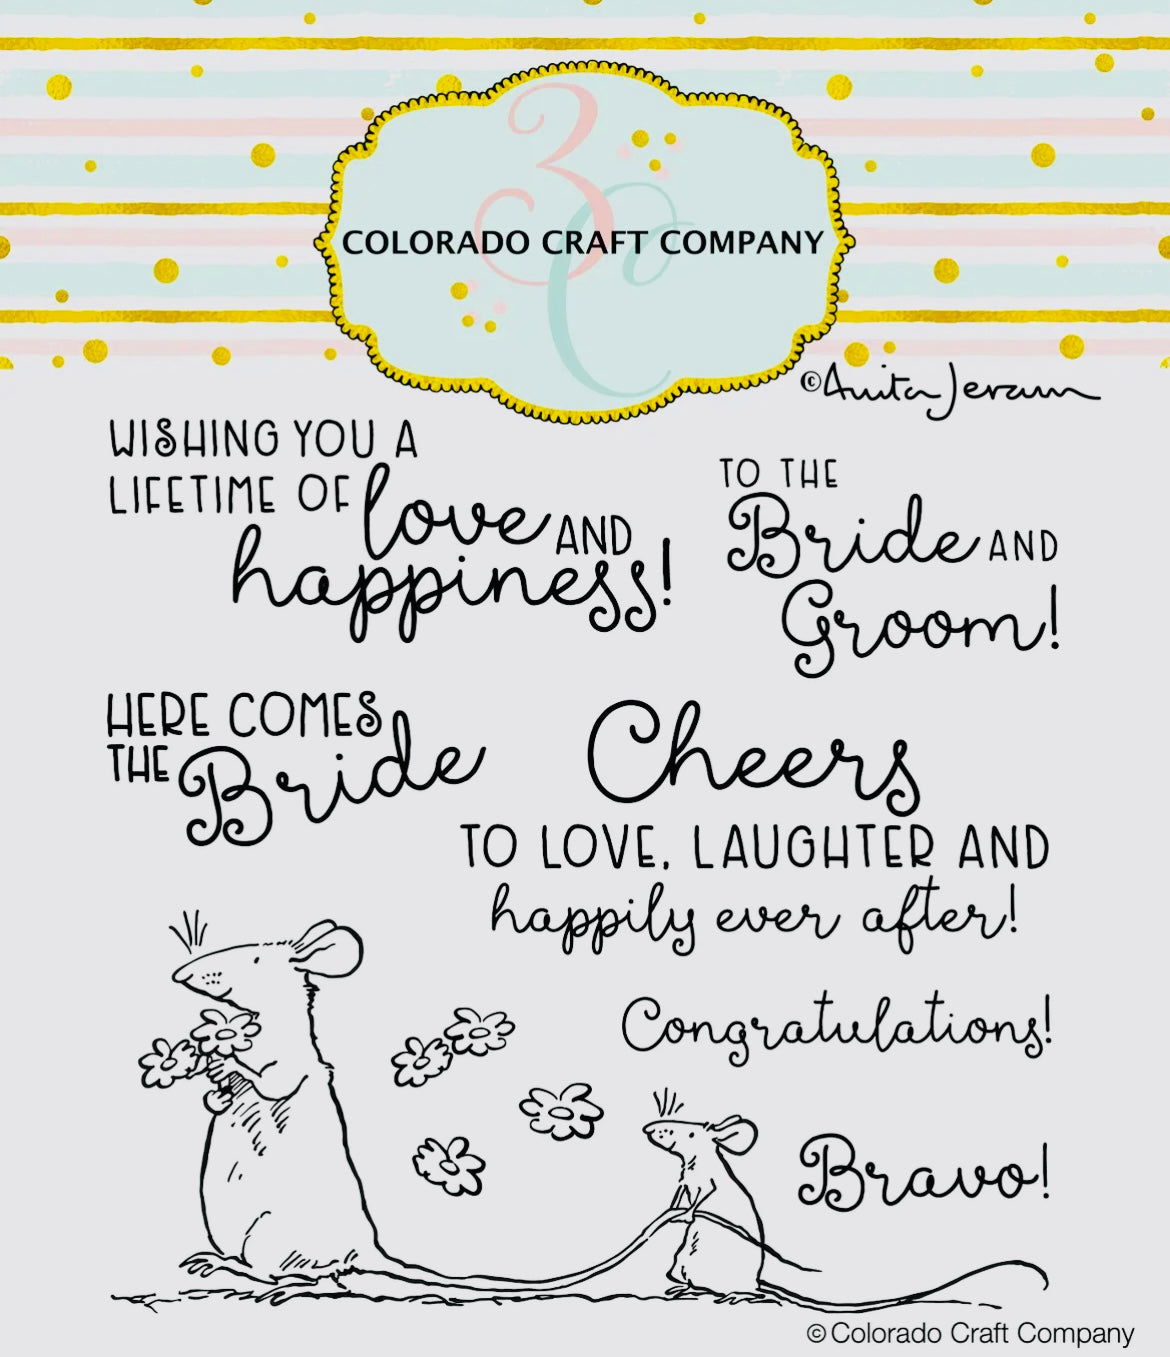 3C
COLORADO CRAFT COMPANY
©Anita Jeram
WISHING YOU A
LIFETIME OF love AND
happiness!
TO THE
Bride AND
Groom!
HERE COMES
THE Bride
Cheers
TO LOVE, LAUGHTER AND
happily ever after!
Congratulations!
Bravo!
©Colorado Craft Company